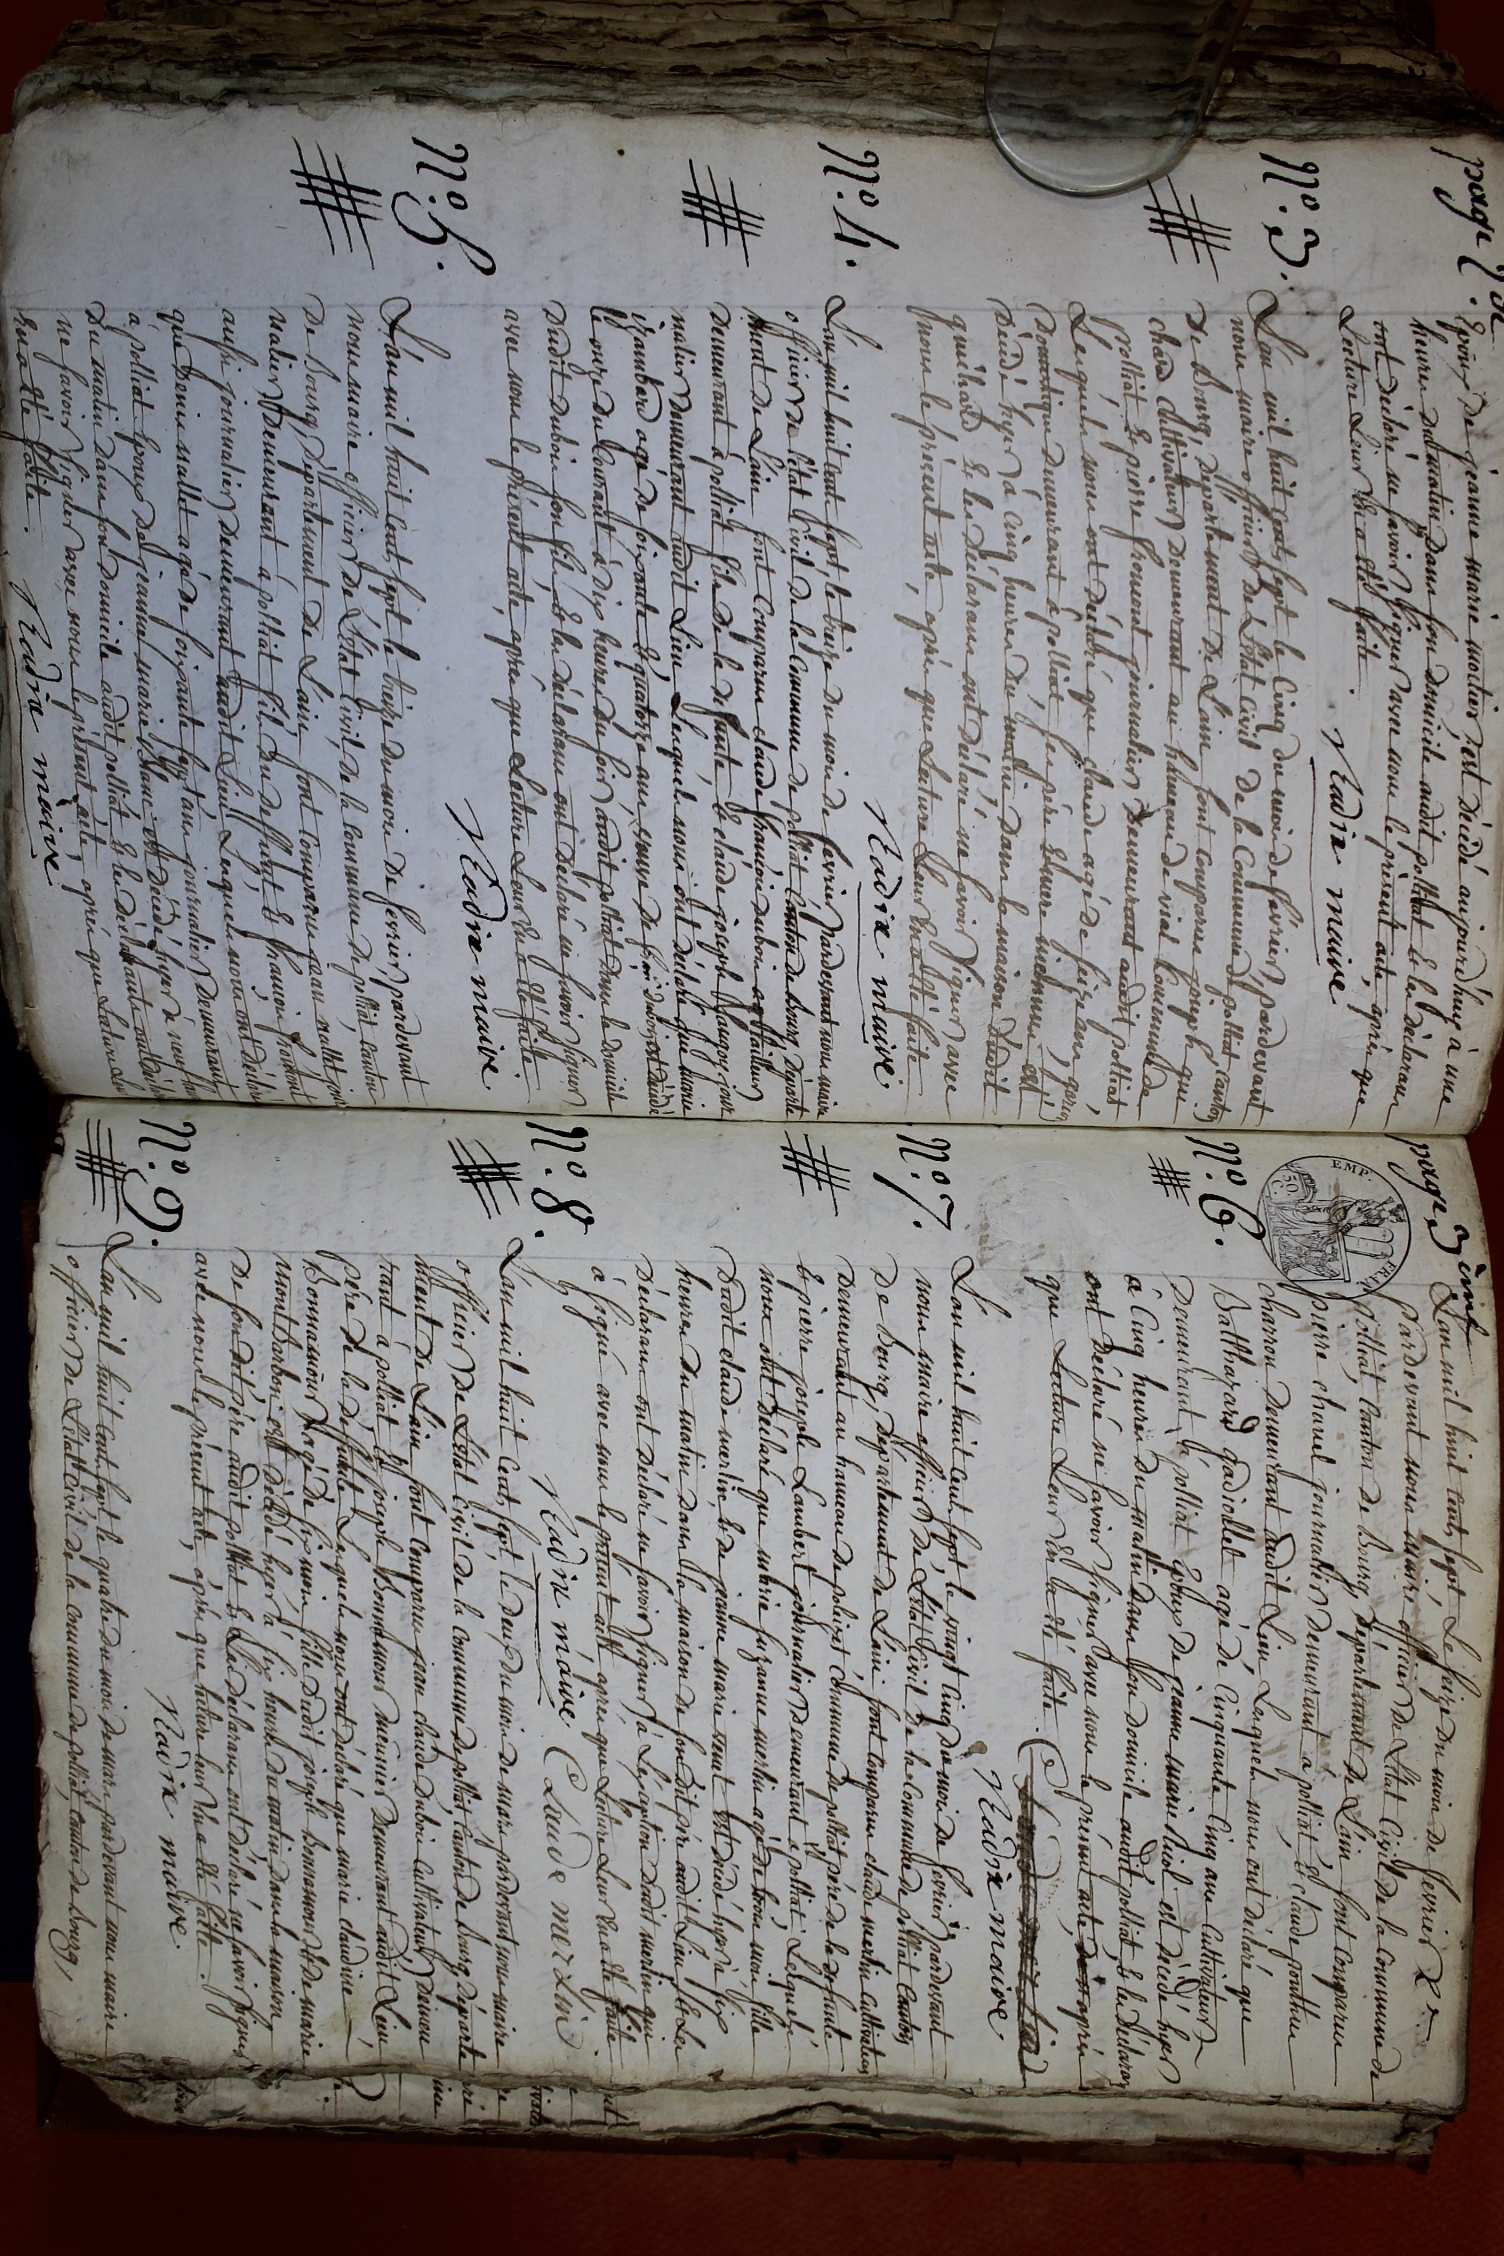 page 2.de
Epoux de jeanne marie moitier est décédé aujourd'huy à une
heure du matin dans son domicile audit polliat & les déclarans
ont déclaré ne savoir signer avec nous le présent acte, après que
Lecture Leur En a été faite.
Nadin maire
N.o 3.
L'an mil huit cent sept le Cinq du mois de février, pardevant
nous maire officier de L'état Civil de la Commune de polliat, canton
de Bourg, département de L'ain sont comparus joseph
cultivateur demeurant au hameau de Commune de
polliat & pierre froment journalier demeurant audit polliat
Lesquels nous ont déclaré que claude agé de seize ans, garçon
Domestique demeurant à polliat, ses père & mere inconnus est
Décédé hyer à cinq heures du matin dans la maison dudit
& les déclarans ont déclaré ne savoir signer avec
nous le présent acte, après que Lecture Leur En a été faite
Nadin maire
N.o 4.
L'an mil huit cent sept, le treize du mois de fevrier, pardevant nous maire
officier de l'état Civil de la Commune de polliat Canton de bourg, départe
ment de L'ain sont comparus claude françois dubois
demeurant à polliat fils de la défunte & claude joseph jour
nalier demeurant audit Lieu Lesquels nous ont déclaré que marie
agé de soixante & quatorze ans, veuve de dubois est décédé
le onze du Courant à dix heures du soir audit polliat dans le domicile
dudit dubois son fils & les déclarans ont déclaré ne savoir signer
avec nous le présent acte, après que Lecture Leur En a été faite
Nadin maire
N.o 5.
L'an mil huit Cent, sept le treize du mois de fevrier, pardevant
nous maire officier de L'état Civil de la Commune de polliat canton
de Bourg, département de L'ain sont Comparus jean mullet jour
nalier demeurant à polliat fils du deffunt & françois froment
aussi journalier demeurant audit Lieu, Lesquels nous ont déclaré
que Denis mullet agé de soixante journalier demeurant
à polliat Epoux de jeanne marie blanc est décédé hyer à
du matin dans son domicile audit polliat & les déclarants ont déclaré
ne savoir signer avec nous le présent acte, après que Lecture Leur
En a été faite.
Nadin maire
page 3.eme
EMP. FRAN.
50 C.
N.o 6.
L'an mil huit cent, sept Le seize du mois de fevrier
Pardevant nous maire officier de L'état Civil de la Commune de
Polliat, Canton de Bourg, département de L'ain sont comparus
pierre chanel journalier demeurant à polliat, & claude ponthus
charron demeurant audit Lieu Lesquels nous ont déclaré que
Balthazard gadiollet agé de Cinquante Cinq ans Cultivateur
Demeurant à polliat Epoux de jeanne marie est décédé hyer
à Cinq heures du matin dans son domicile audit polliat, & les déclarans
ont déclaré ne savoir signer avec nous le présent acte, après
que Lecture Leur En a été faite.
Nadin maire
N.o 7.
L'an mil huit Cent sept, le vingt Cinq du mois de fevrier, pardevant
nous maire officier de L'état Civil de la Commune de polliat Canton
de bourg, département de L'ain sont Comparus claude merlin cultivateur
demeurant au hameau de commune de polliat père de la defunte
& pierre joseph Lambert journalier demeurant à polliat, Lesquels
nous ont déclaré que marie suzanne merlin agé de trois mois fille
dudit claude merlin & de jeanne marie est décédé hyer à six
heures du matin dans la maison de son dit père audit Lieu & Les
Déclarans ont déclaré ne savoir signer à L'exception dudit merlin qui
à signé avec nous le présent acte après que Lecture Leur En a été faite.
Nadin maire Claude merlin
N.o 8.
L'an mil huit Cent, sept, le deux du mois de mars pardevant nous maire
officier de L'état Civil de la commune de polliat Canton de bourg, départe
ment de L'ain sont Comparus jean claude dubois cultivateur demeu
rant à polliat & joseph Bonnamour meunier demeurant audit Lieu
père de la defunte Lesquels nous ont déclaré que marie claudine
Bonnamour agé de six mois fille dudit joseph Bonnamour & de marie
montbarbon est décédé hyer à six heures du matin dans la maison
de son dit père audit polliat & Les déclarans ont déclaré ne savoir signer
avec nous le présent acte, après que lecture leur En a été faitte.
Nadin maire.
N.o 9.
L'an mil huit cent, sept le quatre du mois de mars pardevant nous maire
officier de L'état Civil de la commune de polliat, canton de bourg,